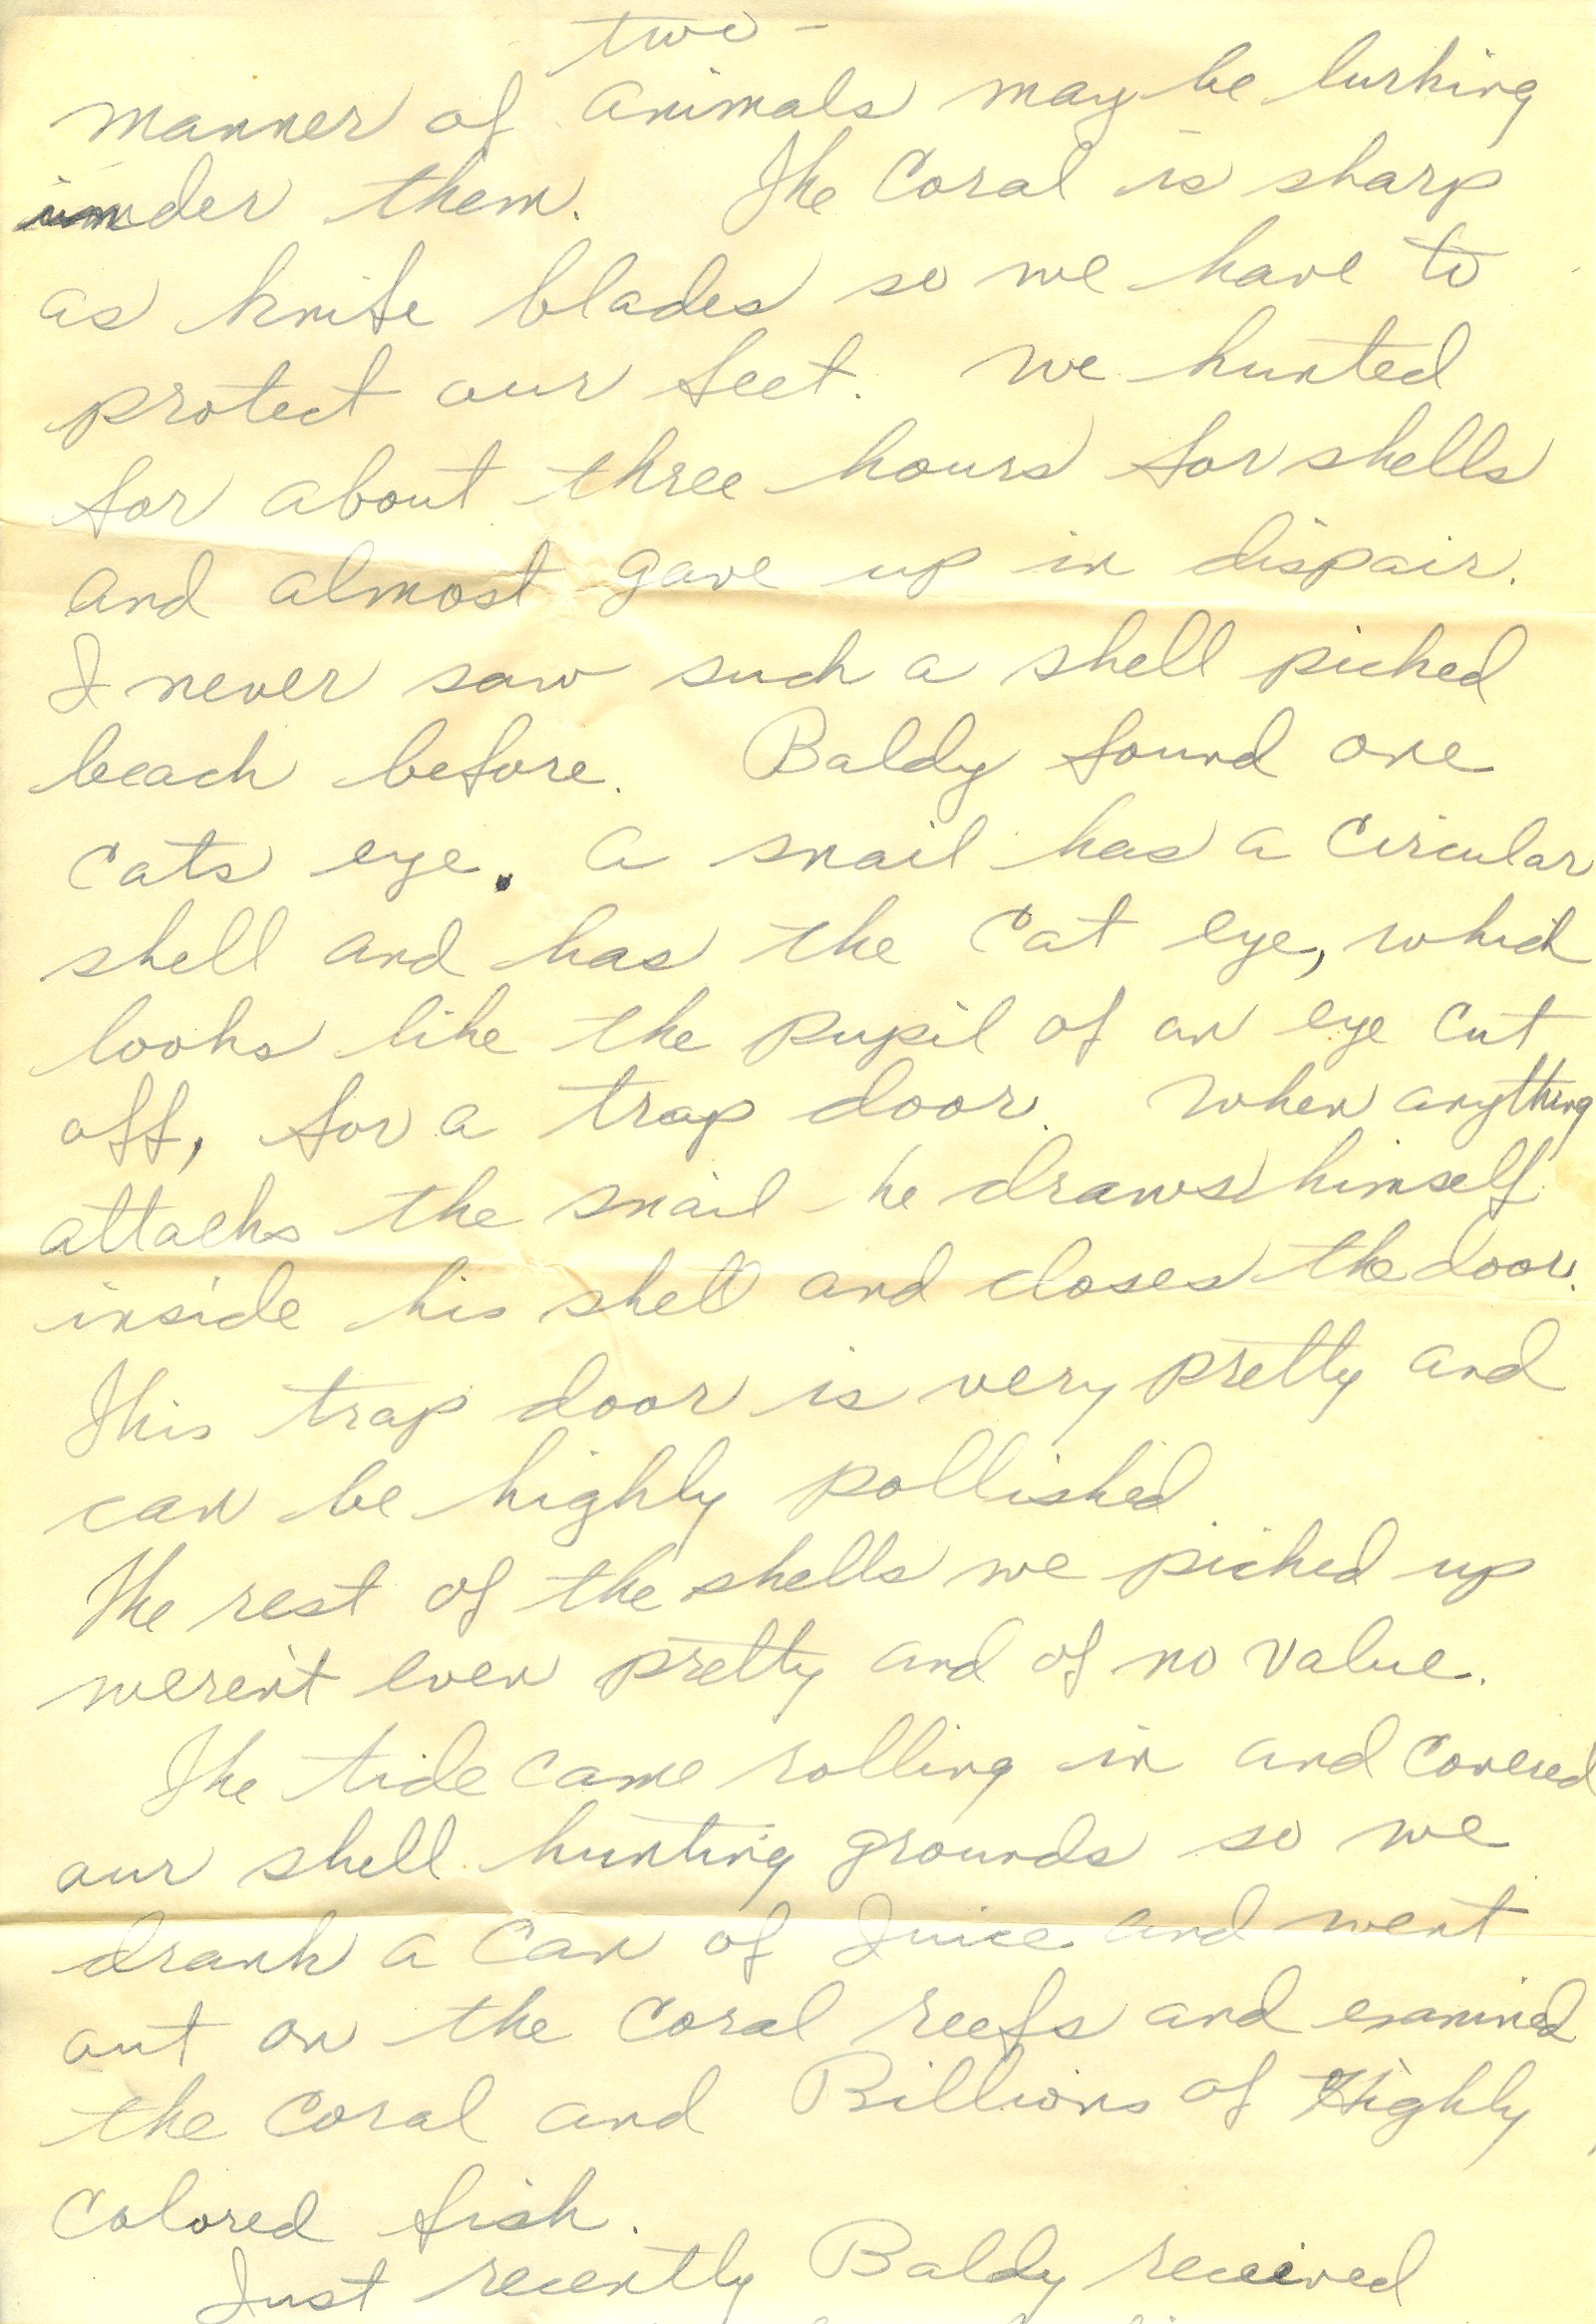 two -
manner of animals may be lurking
under them. The Coral is sharp
as knife blades so we have to
protect our feet. We hunted
for about three hours for shells
and almost gave up in dispair.
I never saw such a shell picked
beach before. Baldy found one
Cats eye. A snail has a Circular
shell and has the Cat eye, which
looks like the pupil of an eye cut
off, for a trap door. When anything
attacks the snail he draws himself
inside his shell and closes the door.
This trap door is very pretty and
can be highly pollished
The rest of the shells we picked up
weren't even pretty and of no value.
The tide came rolling in and Covered
our shell hunting grounds so we
drank a Can of Juice and went
out on the Coral reefs and examined
the Coral and Billions of Highly
Colored fish.
Just recently Baldy received